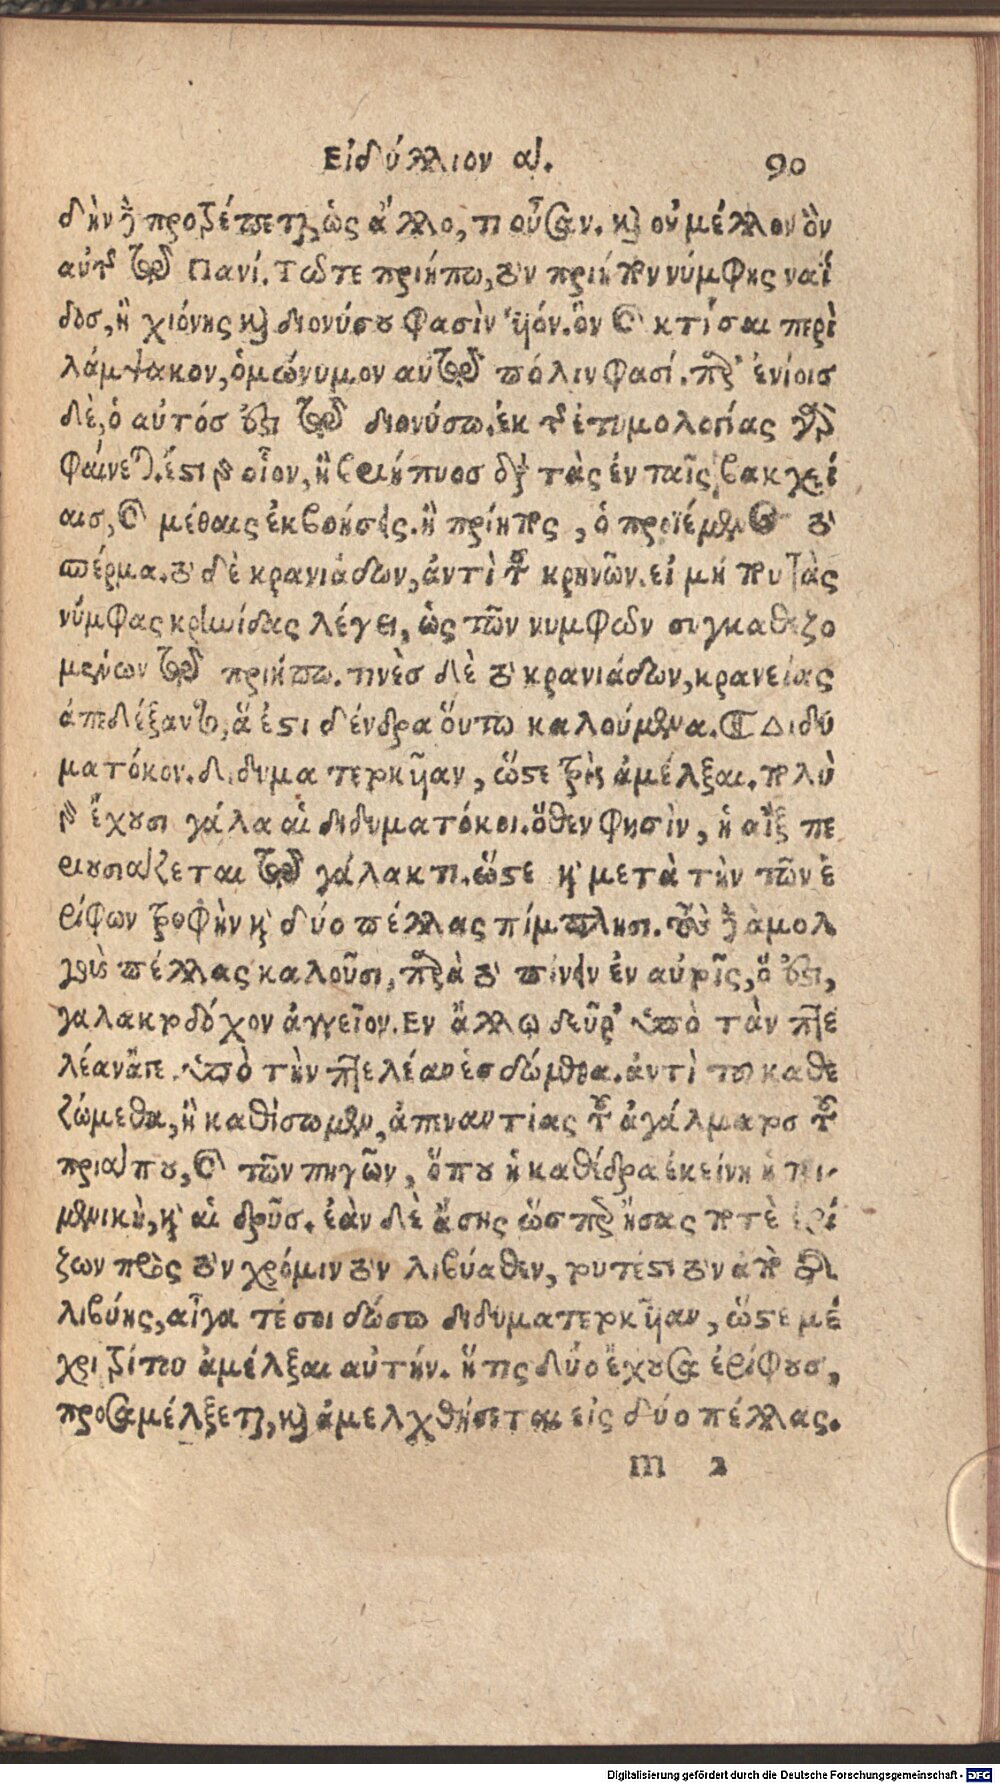 Εἰδύλλιον α. 90
δὴν δὲ προτρέπεται, ὡς ἄλλο, τι οὖσαν. καὶ οὐ μέλλον ὂν
αὐτοῦ τῷ Πανί. Τῶ τε πριήπω, τὸν πρίηπον νύμφης ναΐ
δος, ἢ χιόνης καὶ διονύσου φασὶν υἱόν. ὃν καὶ κτίσαι περὶ
λάμψακον, ὁμώνυμον αὐτῷ πόλιν φασί. παρ' ἐνίοισ
δὲ, ὁ αὐτόσ ἐστι τῷ διονύσω. ἐκ τῆς ἐτυμολογίας
φαίνεται. ἔστι γὰρ οἷον, ἢ βριήπυοσ διὰ τὰς ἐν ταῖς βακχεί
αισ, καὶ μέθαις ἐκβοήσεις. ἢ πρίητος, ὁ προϊέμενος τὸ
σπέρμα. τὸ δὲ κρανιάδων, ἀντὶ τοῦ κρηνῶν. εἰ μή που τὰς
νύμφας κρηνίδας λέγει, ὡς τῶν νυμφῶν συγκαθεζο
μένων τῷ πριήπω. τινὲσ δὲ τὸ κρανιάδων, κρανείας
ἀπεδέξαντο, ἅ ἐστι δένδρα οὕτω καλούμενα. ¶ Διδυ
ματόκον. διδυμα τερκῆαν, ὥστε τρὶς ἀμέλξαι. πολὺ
γὰρ ἔχουσι γάλα αἱ διδυματόκοι. ὅθεν φησὶν, ἡ αἲξ πε
ριουσιάζεται τῷ γάλακτι. ὥστε καὶ μετὰ τὴν τῶν ἐ
ρίφων τροφὴν καὶ δύο πέλλας πίμπλησι. τοὺς δὲ ἀμολ
γοὺς πέλλας καλοῦσι, παρὰ τὸ πίνειν ἐν αὐτοῖς, ὅ ἐστι,
γαλακτοδόχον ἀγγεῖον. Εν ἄλλω δεῦρ' ὑπὸ τὰν πτελέ
λέανἅπε. ὑπὸ τὴν πτελέαν ἑσδώμεθα. ἀντὶ του καθε
ζώμεθα, ἢ καθίσωμεν, ἀπεναντίας τοῦ ἀγάλματοσ τοῦ
πριάπου, καὶ τῶν πηγῶν, ὅπου ἡ καθέδρα ἐκείνη ἡ ποι-
μενικὴ, καὶ αἱ δρῦσ. ἐὰν δὲ ἄσης ὥσπερ ᾖσας ποτὲ ἐρί
ζων πρὸς τὸν χρόμιν τὸν λιβύαθεν, τουτέστι τὸν ἀπὸ τῆς
λιβύης, αἶγα τέ σοι δώσω διδυματερκῆαν, ὥστε μέ
χρι τρίτου ἀμέλξαι αὐτήν. ἥτις δύο ἔχουσα ἐρίφουσ,
προσαμέλξεται, καὶ ἀμελχθήσεται εἰς δύο πέλλας.
m 2
Digitalisierung gefördert durch die Deutsche Forschungsgemeinschaft - DFG